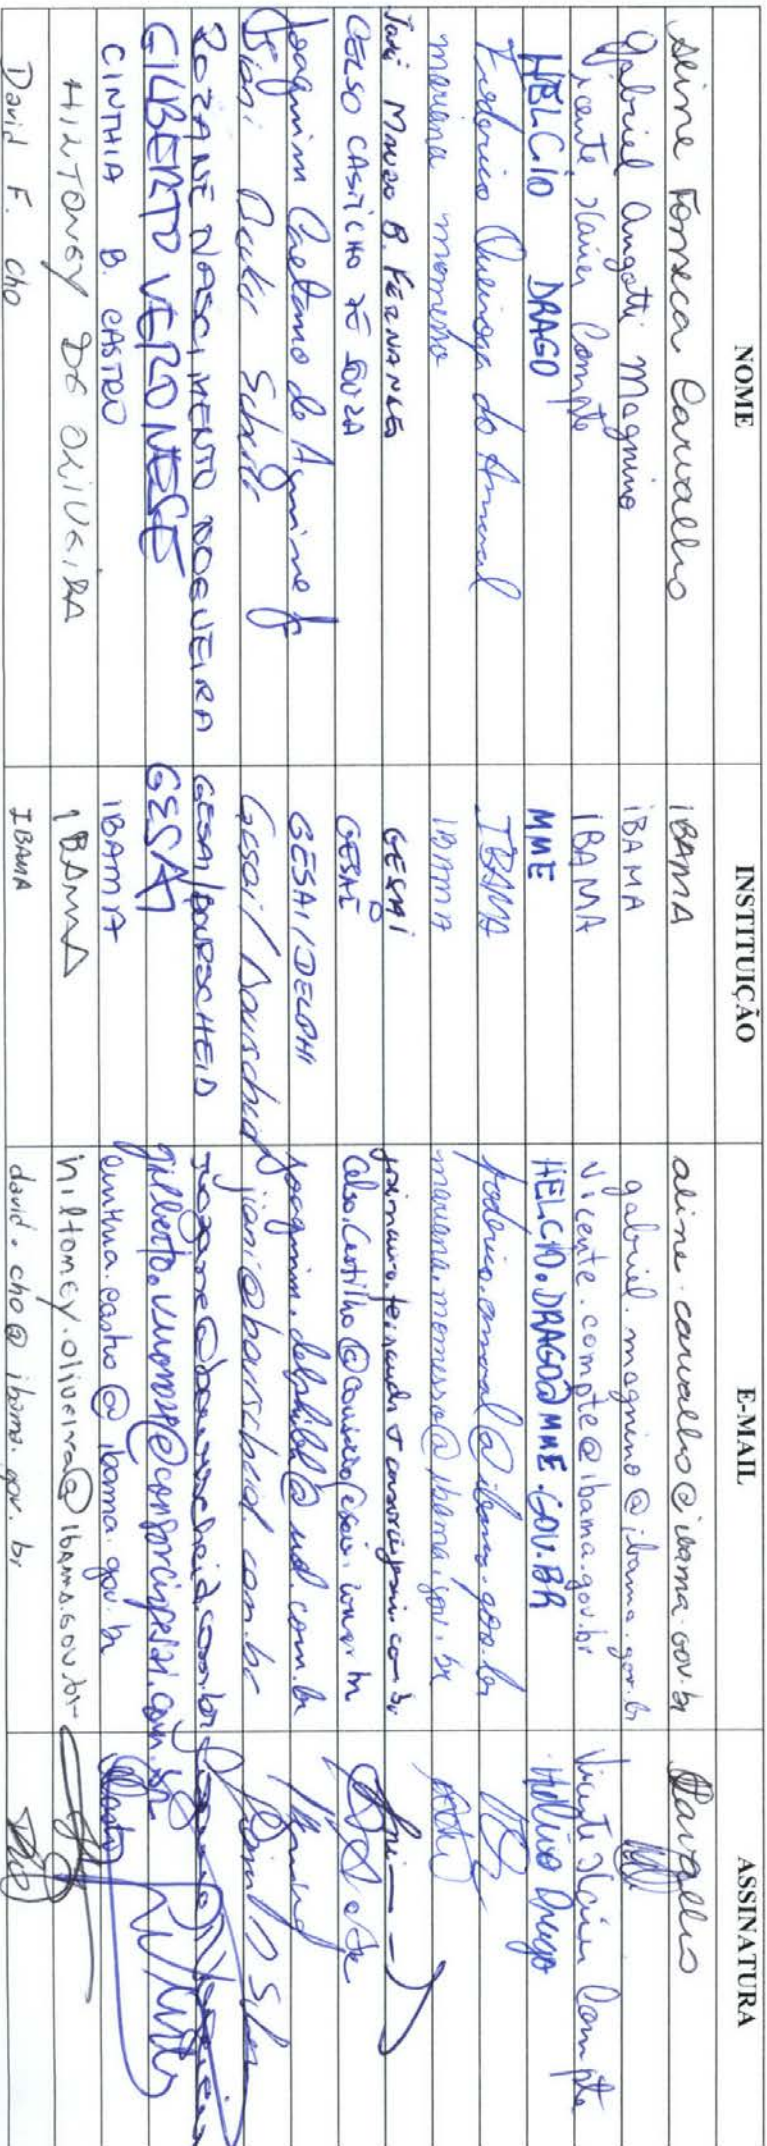 NOME INSTITUIÇÃO E-MAIL ASSINATURA
Aline Fonseca Carvalho IBAMA aline.carvalho@ibama.gov.br Carvalho
Gabriel Angotti Magnino IBAMA gabriel.magnino@ibama.gov.br
Vicente Xavier Compte IBAMA vicente.compte@ibama.gov.br Vicente Xavier Compte
HELCIO DRAGO MME HELCIO.DRAGO@MME.GOV.BR Helcio Drago
Frederico Queiroga do Amaral IBAMA frederico.amaral@ibama.gov.br
mariana momesso IBAMA mariana.momesso@ibama.gov.br
José Mauro B. FERNANDES GESAI
CELSO CASTILHO DE SOUZA GESAI Celso.Castilho@
Joaquim Caetano de Aguirre Jr GESAI/DELPHI
Jioni GESAI/Bourscheid jioni@bourscheid.com.br
ROZANE NASCIMENTO NOGUEIRA GESAI/BOURSCHEID rozane@bourscheid.com.br
GILBERTO VERONESE GESAI gilberto.veronese@consorciogesai.com.br
CINTHIA B. CASTRO IBAMA cinthia.castro@ibama.gov.br Castro
HILTONEY DE OLIVEIRA IBAMA hiltoney.oliveira@ibama.gov.br
David F. Cho IBAMA david.cho@ibama.gov.br